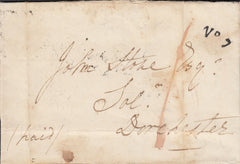 No 7
John Stone Esqr
Solr
Dorchester
(paid)